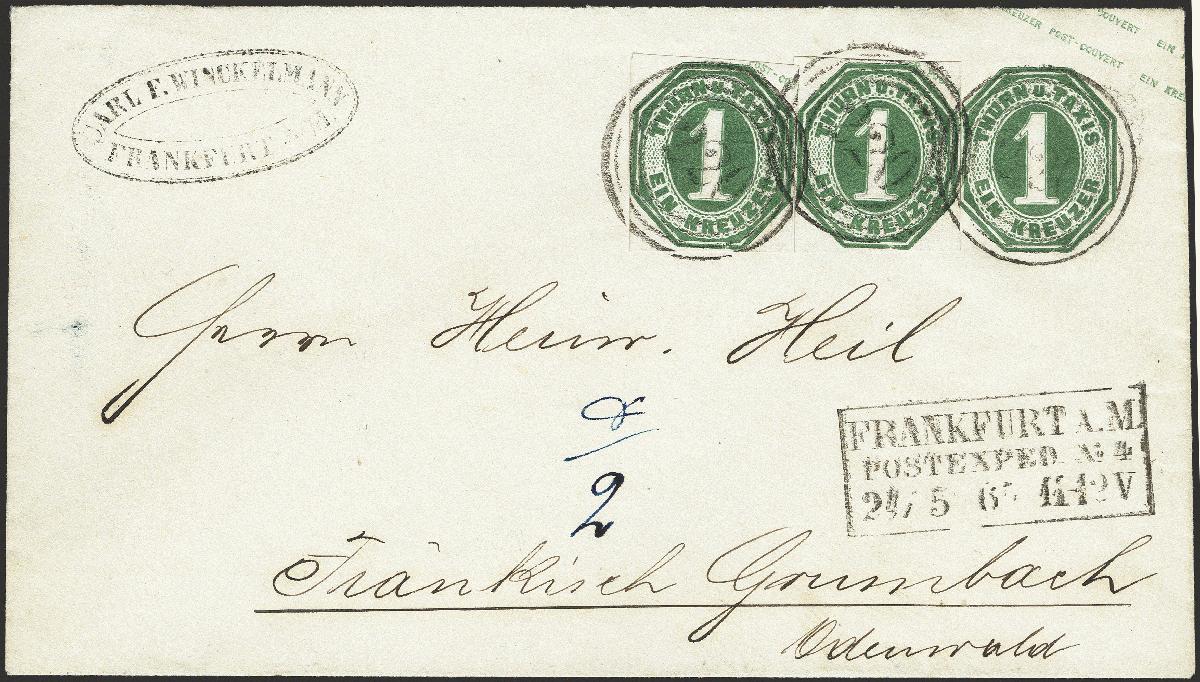 CARL F. WINCKELMANN
FRANKFURT A/M.
THURN U. TAXIS
1
EIN KREUZER
THURN U. TAXIS
1
EIN KREUZER
THURN U. TAXIS
1
EIN KREUZER
KREUZER POST-COUVERT EIN KRE
COUVERT EIN
Herrn Heinr. Heil
2
FRANKFURT A. M.
POSTEXPED. No 4
5 11-12 V
Fränkisch Grumbach
Odenwald